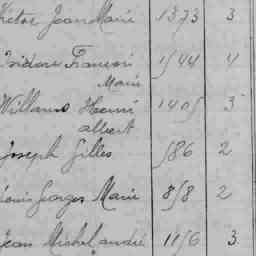 Victor Jean Marie 1373 3
Isidore François 1544 4
Marie
Willams Henri 1405 3
albert
Joseph Gilles 586 2
Louis Georges Marie 858 2
Jean Michel andré 1156 3